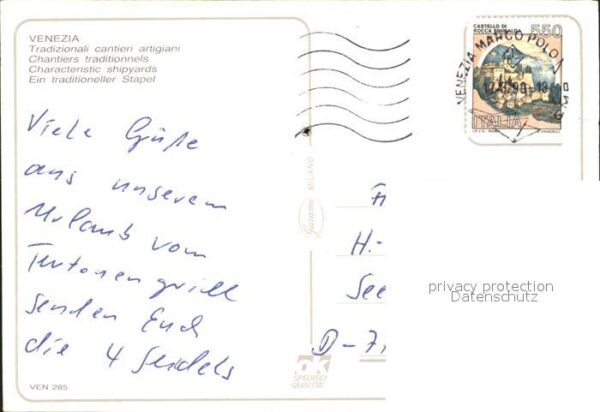 VENEZIA
Tradizionali cantieri artigiani
Chantiers traditionnels
Characteristic shipyards
Ein traditioneller Stapel
Viele Grüße
aus unserem
Urlaub vom
Teutonengrill
senden Euch
die 4 Seidels
VEN 285
MILANO
SPEDISCI
QUALITA'
CASTELLO DI
ROCCA SINIBALDA
550
ITALIA
VENEZIA MARCO POLO
H.-
See
D-7
privacy protection
Datenschutz